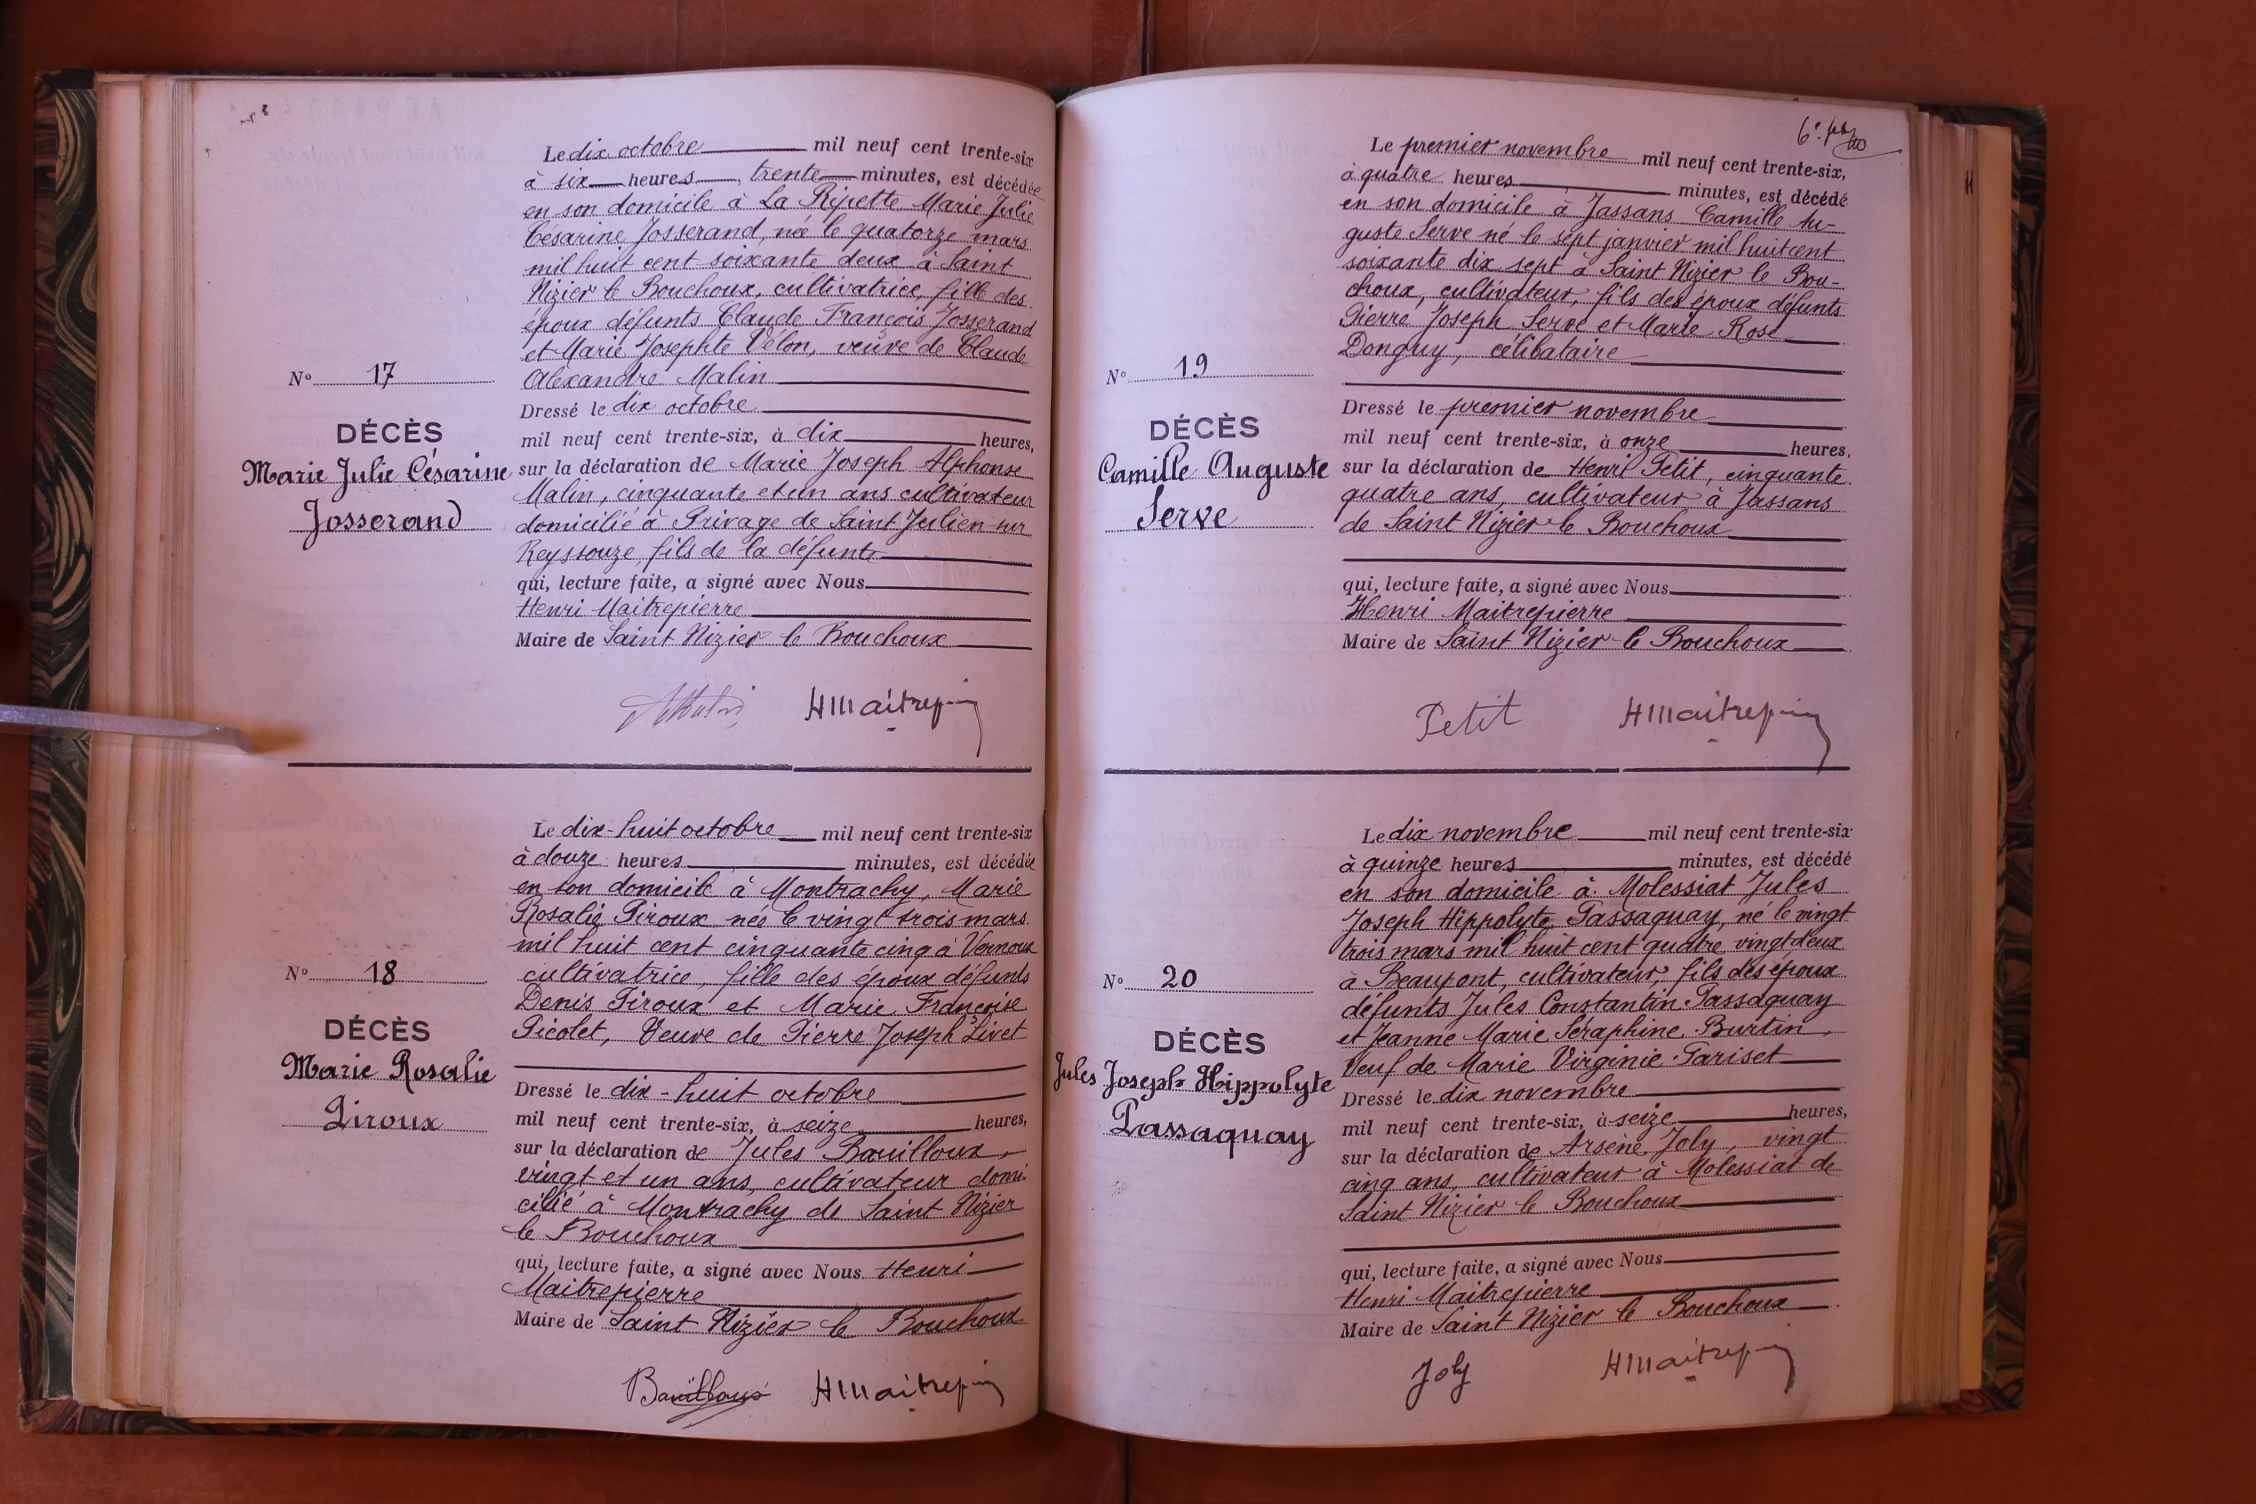 Le dix octobre mil neuf cent trente-six
à six heures, trente minutes, est décédée
en son domicile à La Ripette Marie Julie
Césarine Josserand, née le quatorze mars
mil huit cent soixante deux à Saint
Nizier le Bouchoux, cultivatrice, fille des
époux défunts Claude François Josserand
et Marie Josephte Vélon, veuve de Claude
Alexandre Malin
N° 17
DÉCÈS
Marie Julie Césarine
Josserand
Dressé le dix octobre
mil neuf cent trente-six, à dix heures,
sur la déclaration de Marie Joseph Alphonse
Malin, cinquante et un ans cultivateur
domicilié à Privage de Saint Julien sur
Reyssouze, fils de la défunte
qui, lecture faite, a signé avec Nous
Henri Maitrepierre
Maire de Saint Nizier le Bouchoux
HMaitrepierre
Le dix-huit octobre mil neuf cent trente-six
à douze heures minutes, est décédée
en son domicile à Montrachy, Marie
Rosalie Piroux née le vingt trois mars
mil huit cent cinquante cinq à Vernoux
cultivatrice, fille des époux défunts
Denis Piroux et Marie Françoise
Picolet, Veuve de Pierre Joseph Livet
N° 18
DÉCÈS
Marie Rosalie
Piroux
Dressé le dix-huit octobre
mil neuf cent trente-six, à seize heures,
sur la déclaration de Jules Bouilloux,
vingt et un ans, cultivateur domi
cilié à Montrachy de Saint Nizier
le Bouchoux
qui, lecture faite, a signé avec Nous Henri
Maitrepierre
Maire de Saint Nizier le Bouchoux
HMaitrepierre
6e
Le premier novembre mil neuf cent trente-six,
à quatre heures minutes, est décédé
en son domicile à Jassans Camille Au-
guste Serve né le sept janvier mil huit cent
soixante dix sept à Saint Nizier le Bou-
choux, cultivateur, fils des époux défunts
Pierre Joseph Serve et Marie Rose
Donguy, célibataire
N° 19
DÉCÈS
Camille Auguste
Serve
Dressé le premier novembre
mil neuf cent trente-six, à onze heures,
sur la déclaration de Henri Petit, cinquante
quatre ans, cultivateur à Jassans
de Saint Nizier le Bouchoux
qui, lecture faite, a signé avec Nous
Henri Maitrepierre
Maire de Saint Nizier le Bouchoux
Petit HMaitrepierre
Le dix novembre mil neuf cent trente-six
à quinze heures minutes, est décédé
en son domicile à Molessiat Jules
Joseph Hippolyte Passaquay, né le vingt
trois mars mil huit cent quatre vingt deux
à Beaupont, cultivateur, fils des époux
défunts Jules Constantin Passaquay
et Jeanne Marie Séraphine Burtin,
Veuf de Marie Virginie Pariset
N° 20
DÉCÈS
Jules Joseph Hippolyte
Passaquay
Dressé le dix novembre
mil neuf cent trente-six, à seize heures,
sur la déclaration de Arsène Joly, vingt
cinq ans, cultivateur à Molessiat de
Saint Nizier le Bouchoux
qui, lecture faite, a signé avec Nous
Henri Maitrepierre
Maire de Saint Nizier le Bouchoux
Joly HMaitrepierre